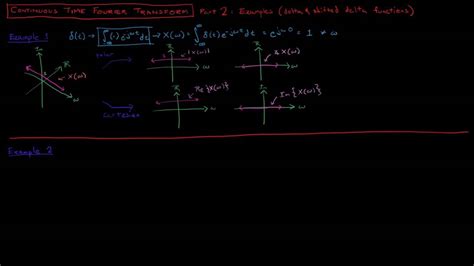 CONTINUOUS TIME FOURIER TRANSFORM Part 2 - Examples (delta & shifted delta functions)
Example 1 δ(t) → ∫_{-∞}^{∞} (·) e^{-jωt} dt → X(ω) = ∫_{-∞}^{∞} δ(t) e^{-jωt} dt = e^{-jω0} = 1 ∀ ω
Im R |X(ω)| ∠X(ω)
X(ω) polar ω ω
ω R Re{X(ω)} Im{X(ω)}
cartesian ω ω
Example 2